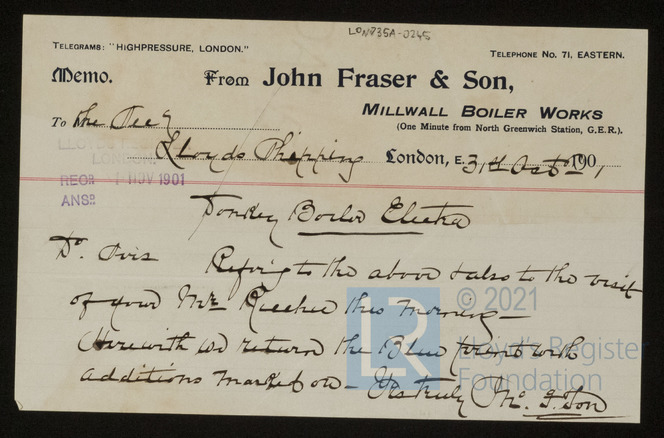 LON735A-0245
TELEGRAMS: "HIGHPRESSURE, LONDON."
TELEPHONE NO. 71, EASTERN.
Memo. From John Fraser & Son,
MILLWALL BOILER WORKS
(One Minute from North Greenwich Station, G.E.R.).
To the Secy
Lloyds Shipping London, E. 31st Octr 1901
LLOYD'S REG
LONDON.
RECD 1 NOV 1901
ANSD
Donkey Boiler Electra
Dr Sirs Refering to the above & also to the visit
of your Mr this morning —
Herewith we return the Blue print with
additions marked on — Yrs truly Jno. F. & Son
LR © 2021
Lloyd's Register
Foundation